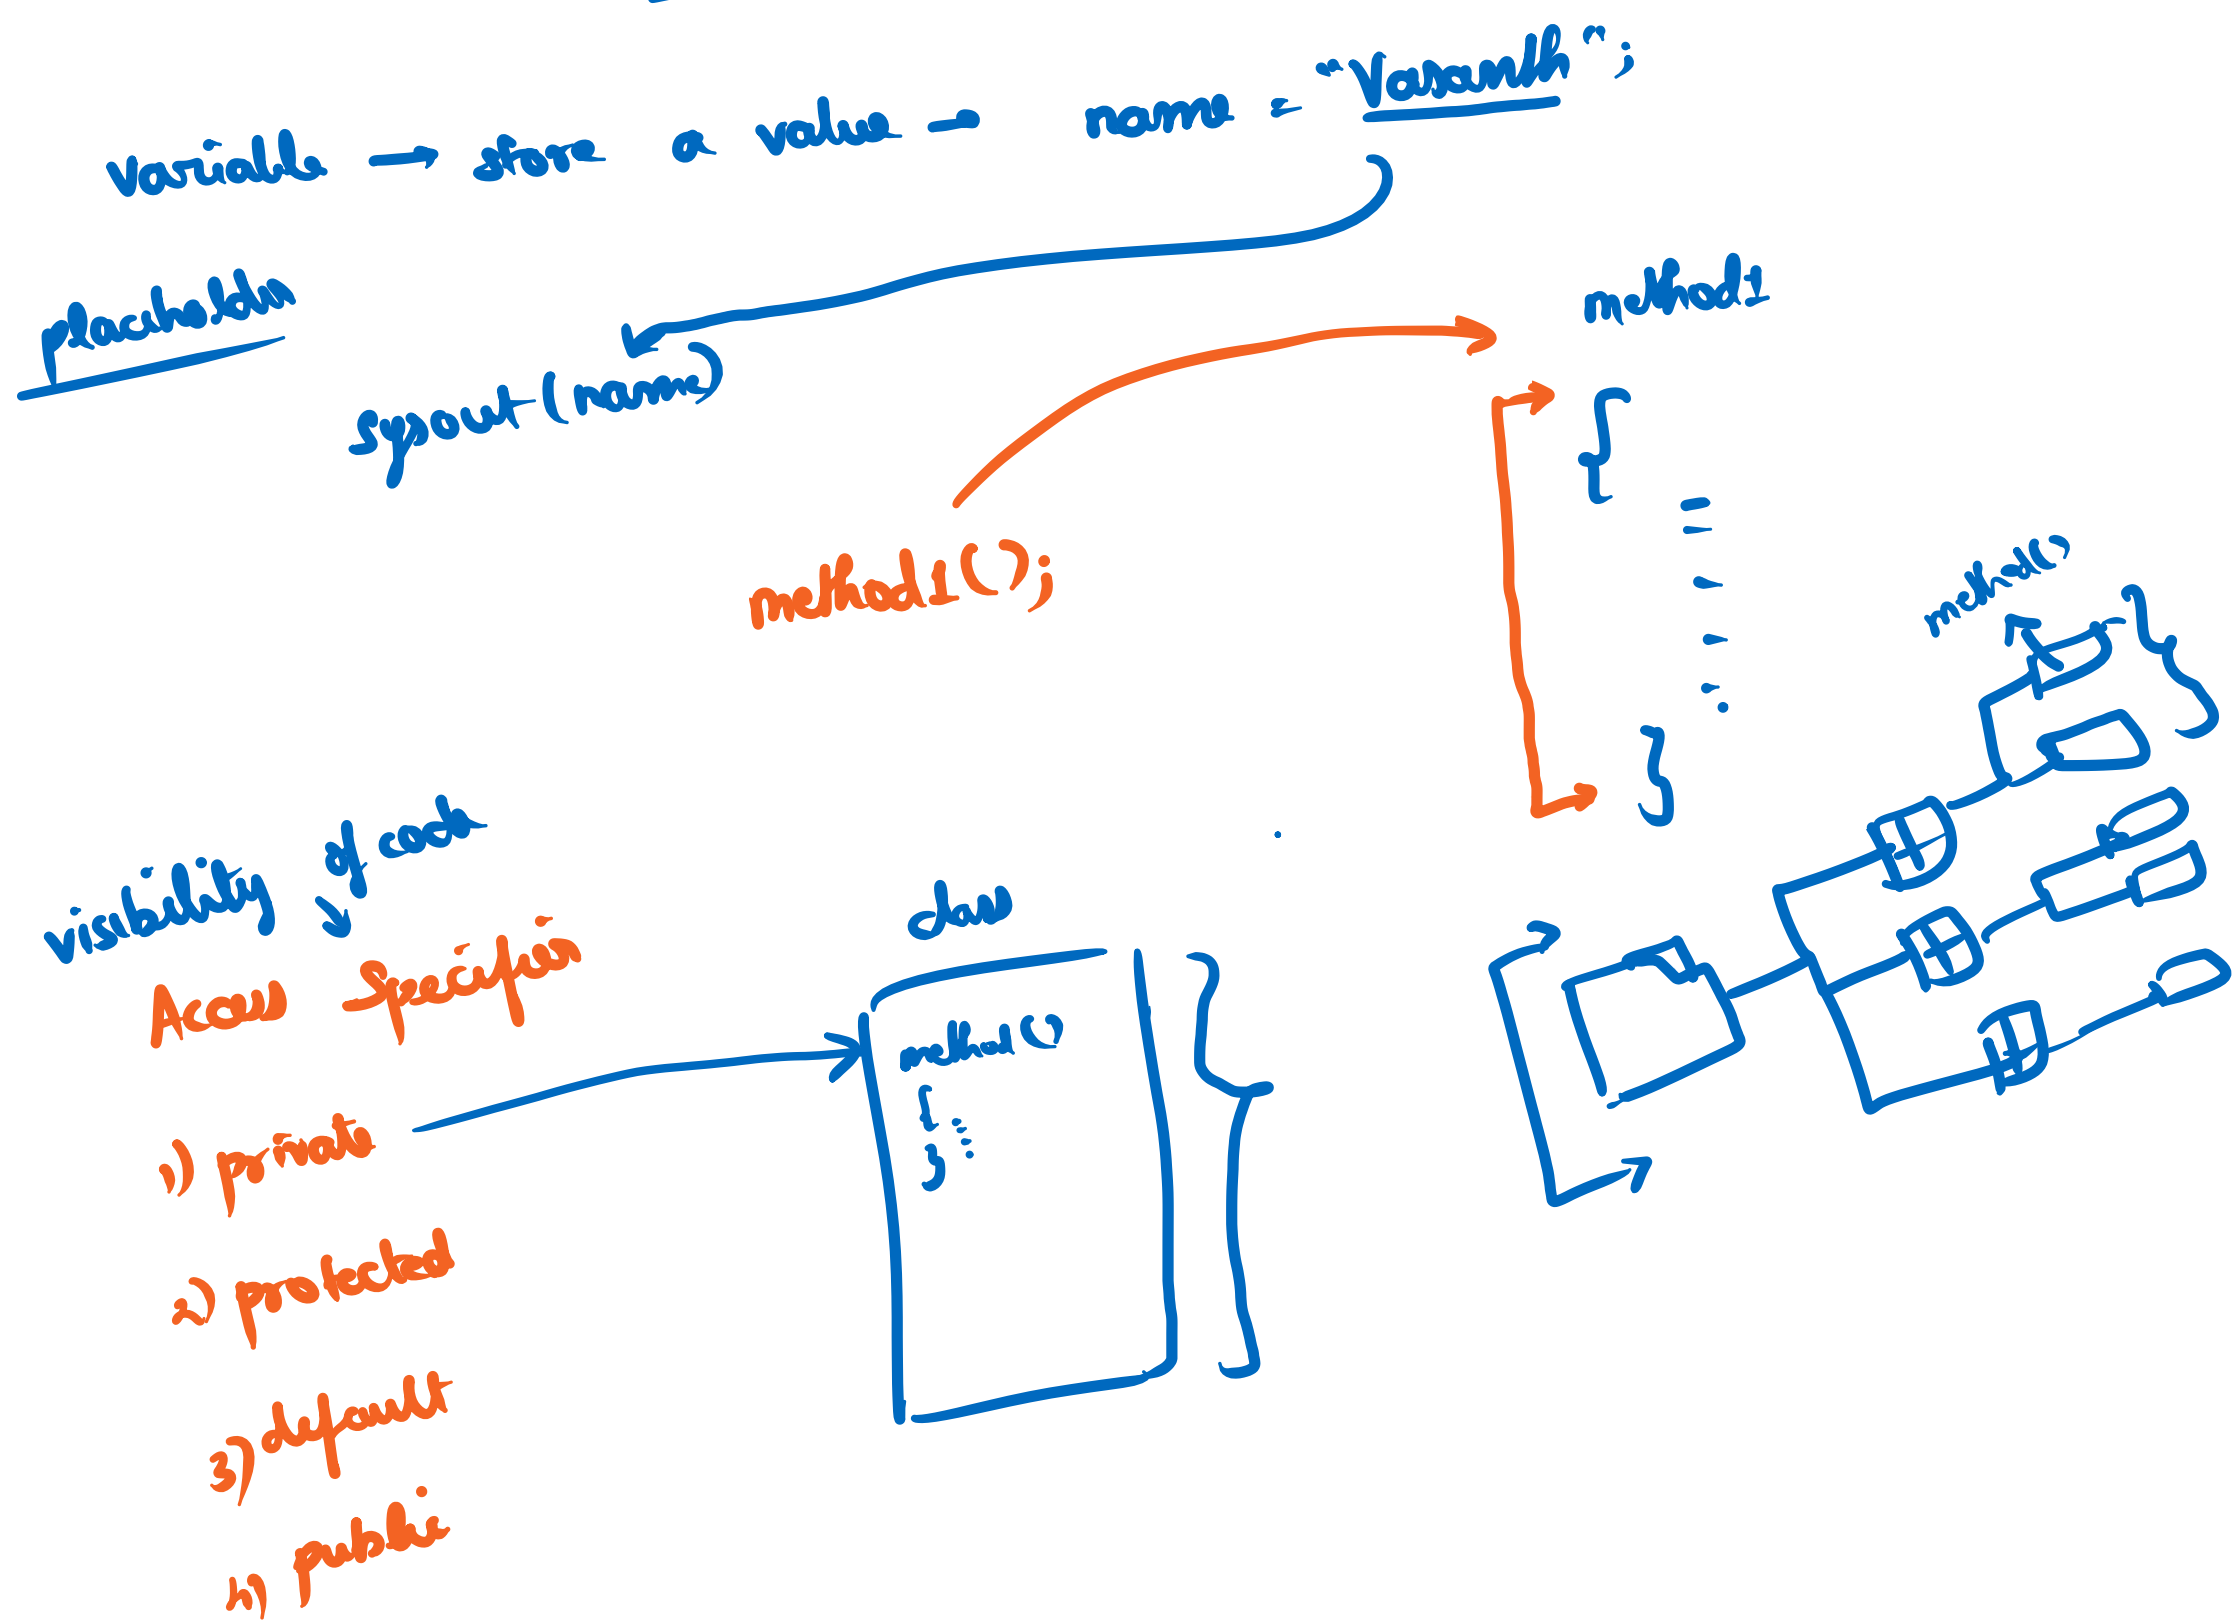 variable → store a value → name = "Vasanth";
placeholder
sysout(name)
method1
{
}
method1();
method()
visibility of code
Access Specifier
1) private
2) protected
3) default
4) public
class
method()
{
}